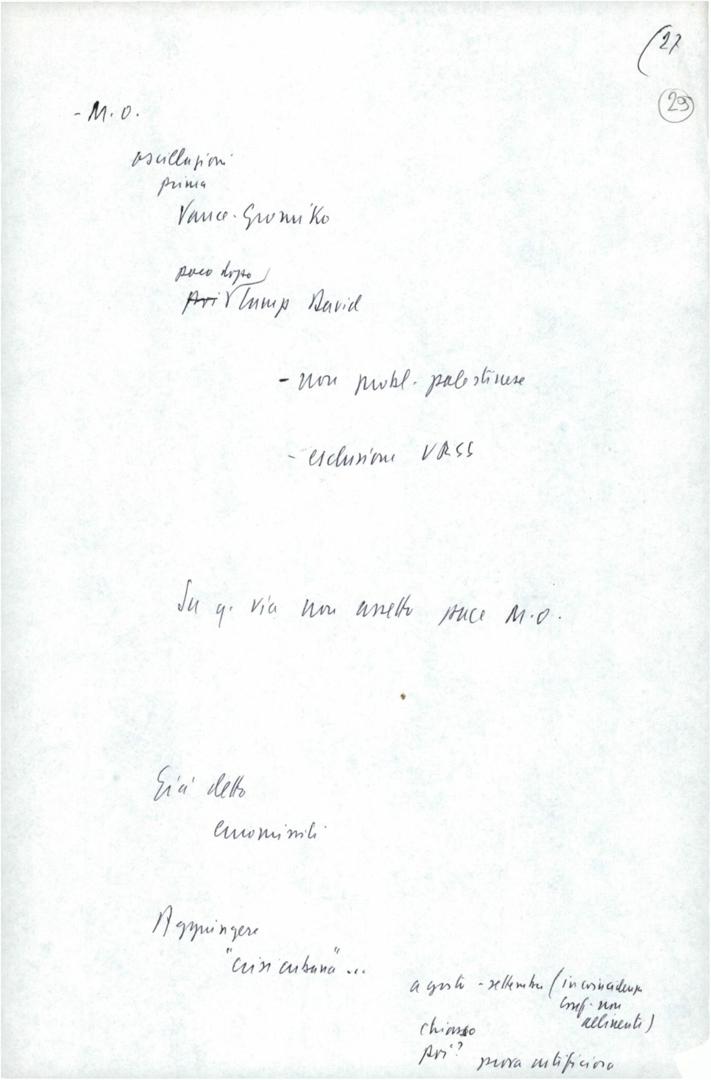 (27
29
- M.O.
oscillazioni
prima
Vance-Gromiko
poco dopo
poi Camp David
- non probl. palestinese
- esclusione URSS
Su q. via non assetto pace M.O.
Già detto
euromissili
Aggiungere
"crisi cubana"...
agosto - settembre (in coincidenza
conf. non
allineati)
chiasso
poi? prova artificiosa